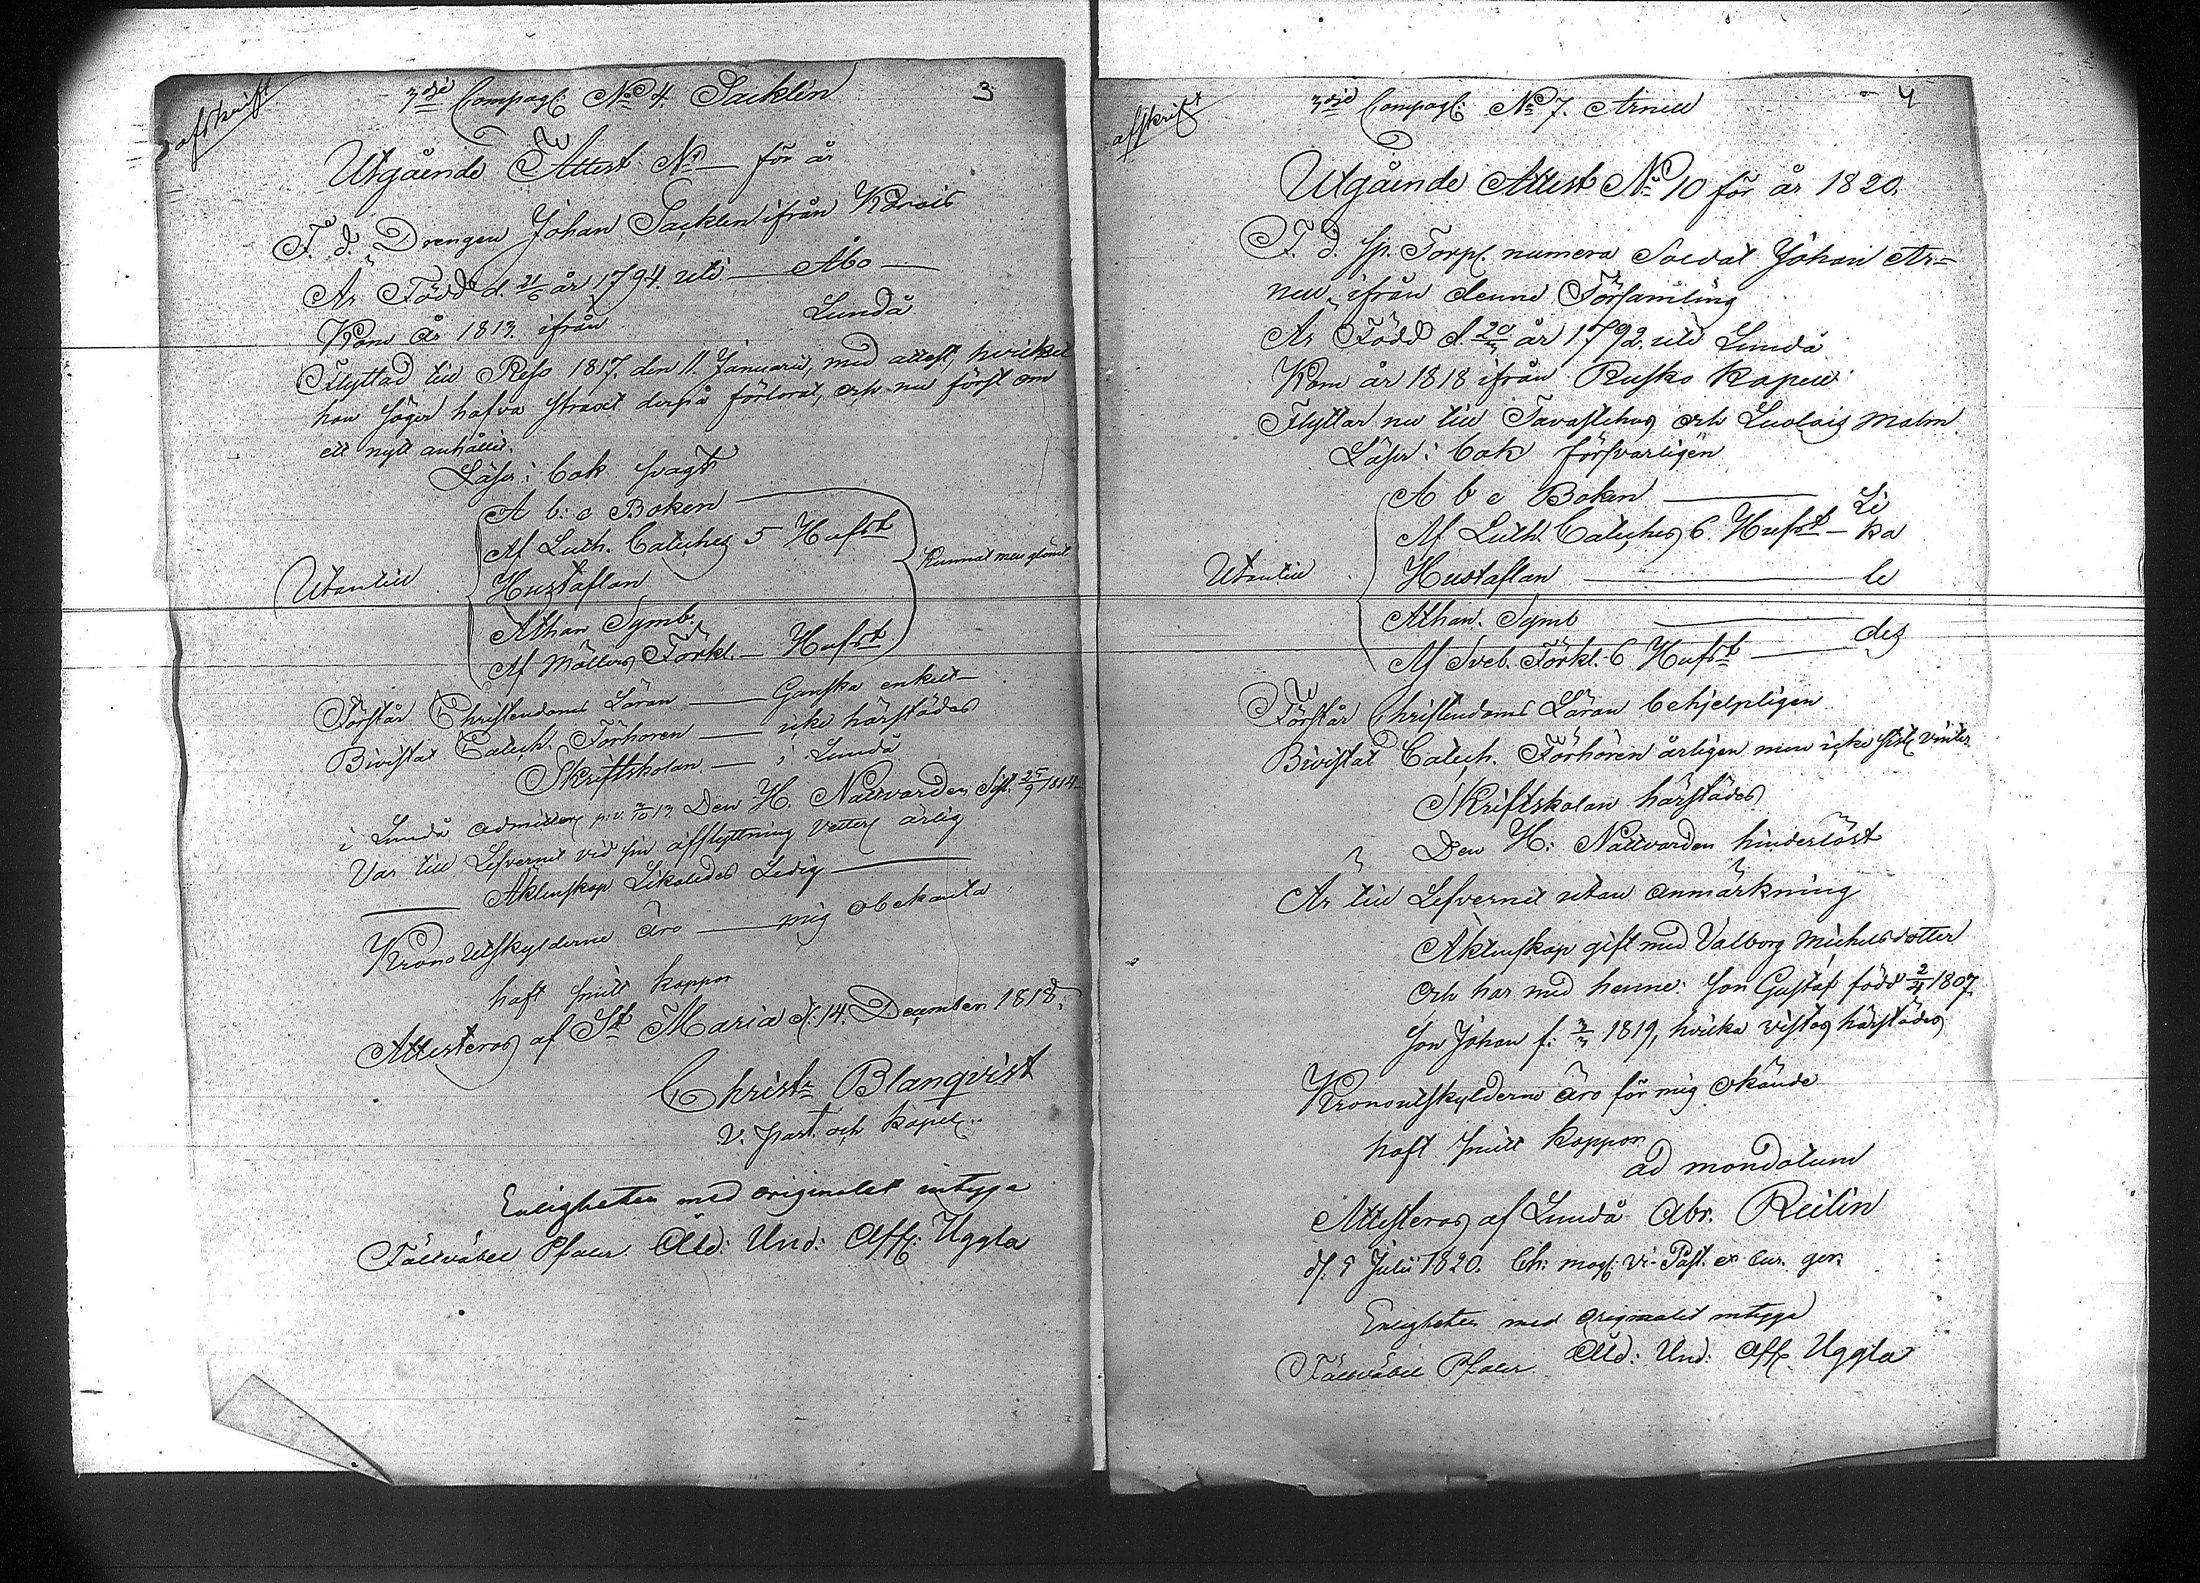 afskrift
3dje Compagt: No 4. Sacklin
3
Utgående Attest No — för år
F. d. Drengen Johan Sacklin ifrån Kårois
Är Född d. 21/6 år 1794. uti — Åbo —
Kom år 1813. ifrån Lundå
Flyttad till Reso 1817. den 11. Januarii, med attest, hvilket
han säger hafva straxt derpå förlorat, och nu först om
ett nytt anhållit.
Läser i bok svagt
A b: c Boken
Af Luth. Catches 5 Hufst
Utantill
Hustaflan
Kunnat men glömt
Athan Symb.
Af Möllers Förkl. — Hufst
Förstår Christendoms Läran — Ganska enkelt —
Bivistat Catech. Förhören — icke härstädes
Skriftskolan — i Lundå
i Lundå admitterad 13. Den H. Nattvarden Sist. 25/9 1814
Var till Lefvernet vid sin afflyttning veterl. ärlig
Äktenskap Likaledes Ledig
Krono Utskylderne äro — mig obekanta
haft små koppor
Attesteras af St Maria d. 14. December 1818.
Christ. Blanqvist
V. past. och kapel.
Enligheten med originalet intyga
Fältväbel Pfaler. Åld: Und: Aff. Uggla
afskrift
3dje Compagt: No 7. Arnell
4
Utgående Attest No 10 för år 1820.
F. d. Sp. Torp. numera Soldat Johan Ar=
nell, ifrån denne Församling
Är Född d. 20/3 år 1792. uti Lundå
Kom år 1818 ifrån Rusko kapell
Flyttar nu till Tavastehus och Luolais malm
Läser i bok försvarligen
A b c Boken — Li
Af Luth. Catches 6. Hufst — ka
Utantill
Hustaflan — le
Athan. Symb
Af Sveb. Förkl. 6 Hufst — des
Förstår Christendoms Läran behjelpligen
Bivistat Catech. Förhören årligen men icke sistl. vinter
Skriftskolan härstädes
Den H: Nattvarden hinderlöst
Är till Lefvernet utan anmärkning
Äktenskap gift med Valborg Michelsdotter
och har med henne: Son Gustaf född 2/4 1807.
Son Johan f: 3/3 1819, hvilka vistas härstädes
Kronoutskylderne äro för mig okände
haft små koppor
ad mandatum
Attesteras af Lundå Abr. Reilin
d. 5 Julii 1820. Ch: mag. Vi- Past. et Cur. ger.
Enligheten med originalet intyga
Fältväbel Pfaler. Åld: Und: Aff. Uggla